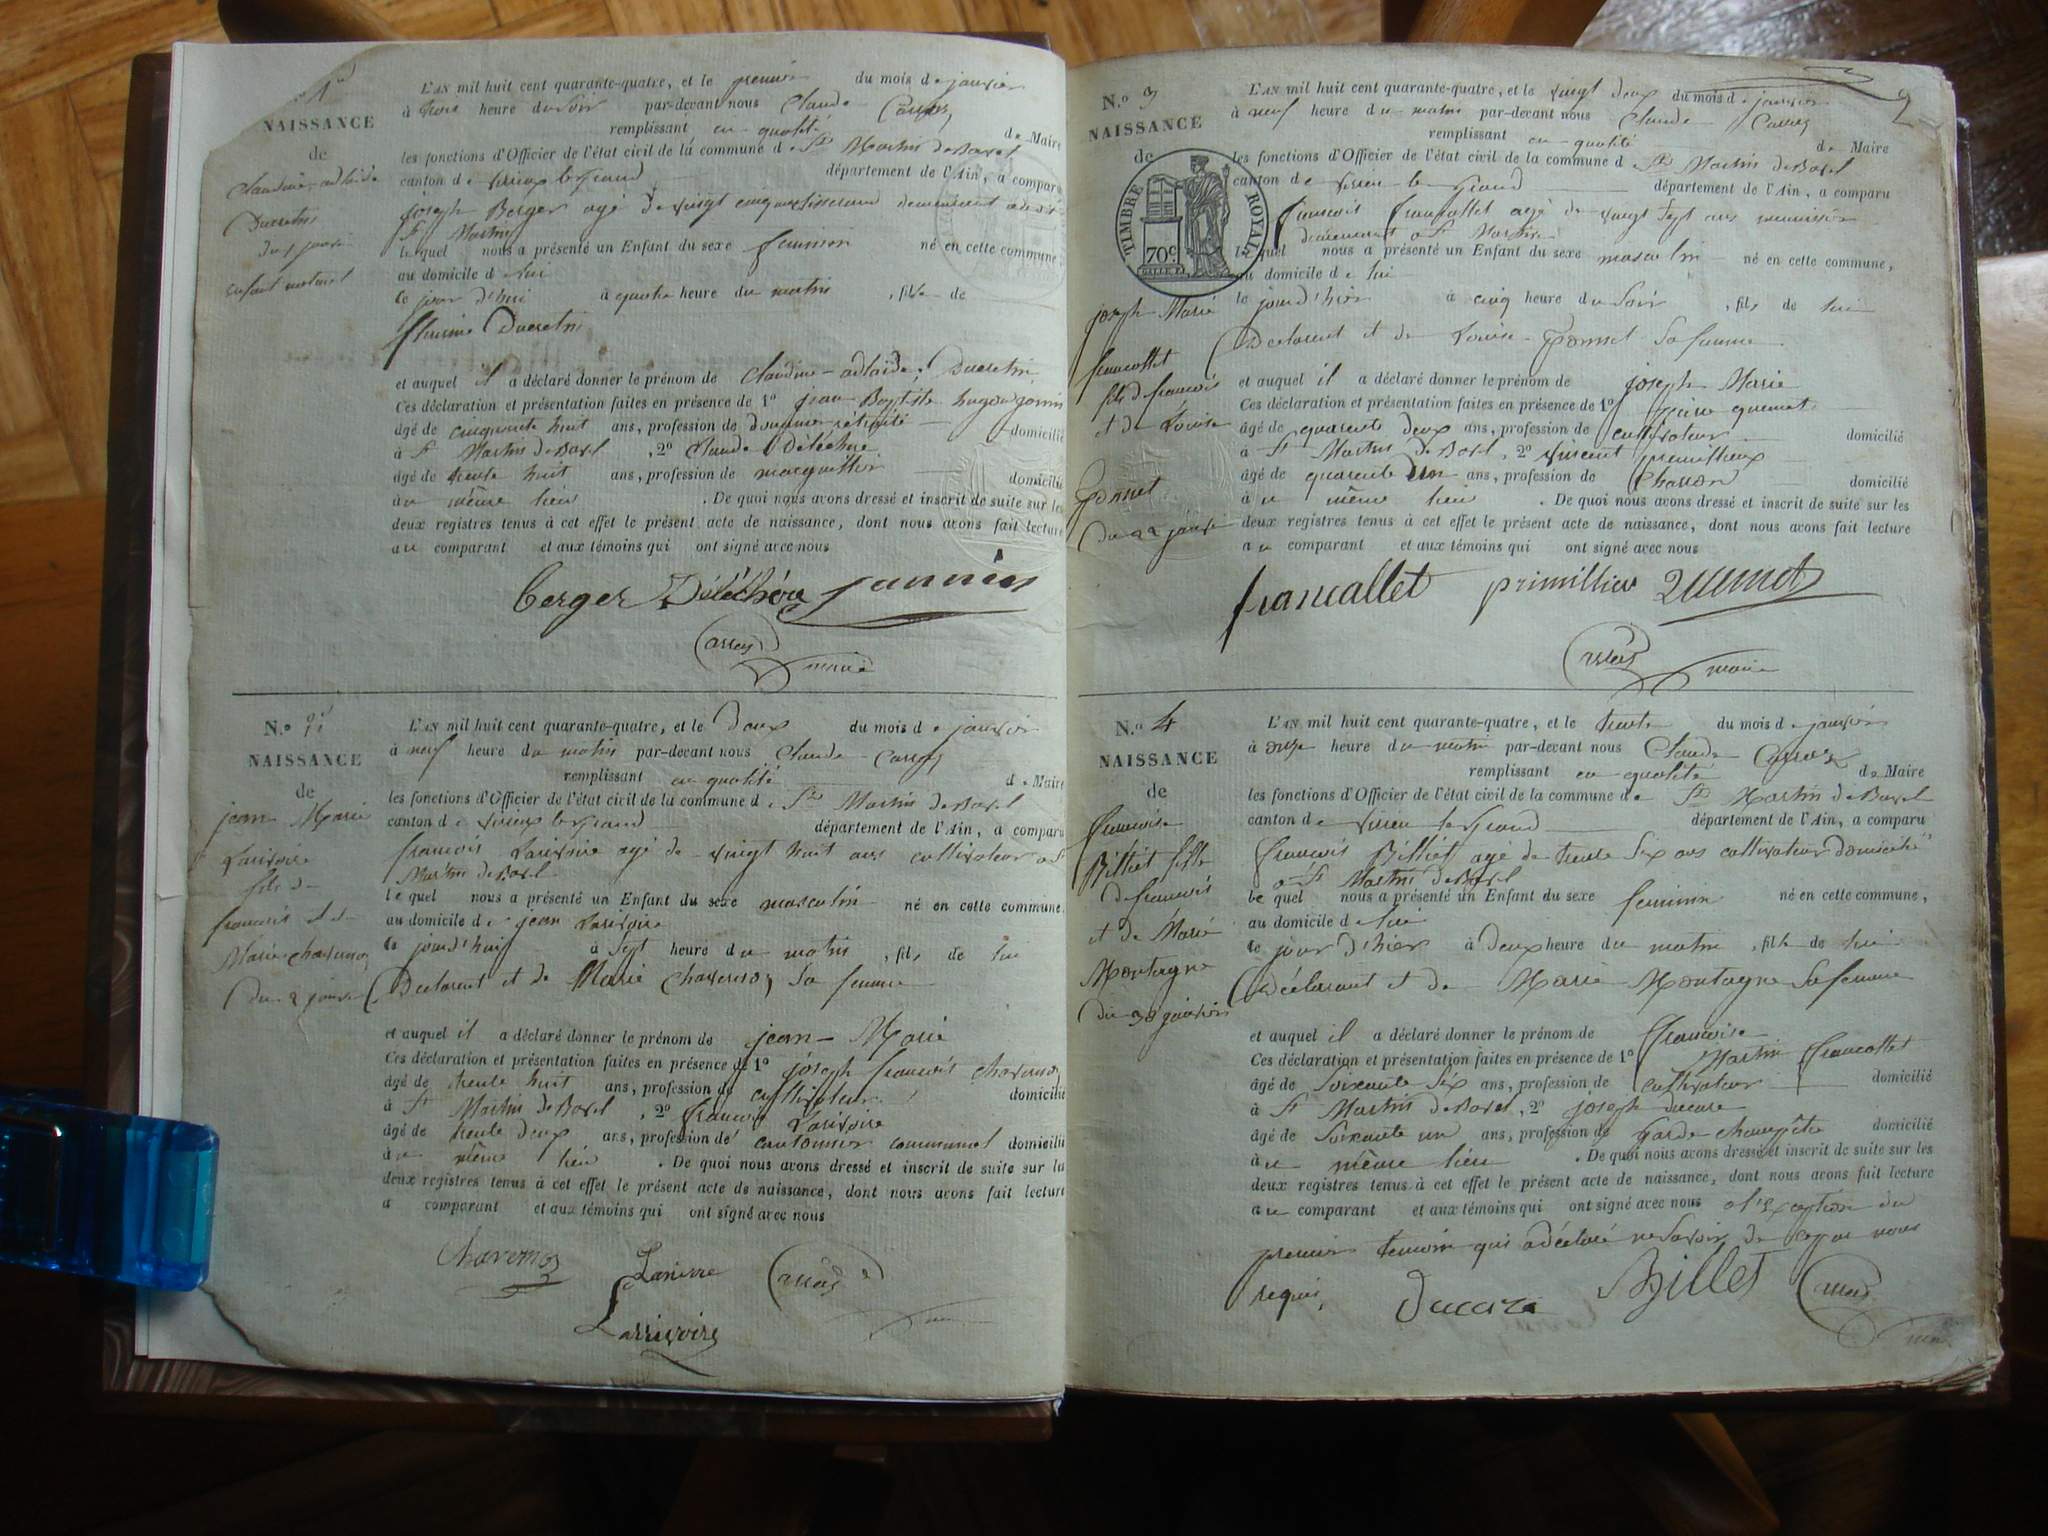 1er
NAISSANCE
de
Claudine adlaide
Ducretin
du 1 janvier
enfant naturel
L'AN mil huit cent quarante-quatre, et le premier du mois de janvier
à heure du soir par-devant nous Claude
remplissant en qualité de Maire
les fonctions d'Officier de l'état civil de la commune de St Martin de Bavel
canton de Virieux le grand département de l'Ain, a comparu
joseph Berger agé de vingt cinq ans tisserand demeurant
St Martin
le quel nous a présenté un Enfant du sexe feminin né en cette commune
au domicile de lui
ce jour d'hui à quatre heure du matin , fille de
Ducretin
et auquel il a déclaré donner le prénom de Claudine-adlaide, Ducretin
Ces déclaration et présentation faites en présence de 1º jean Baptiste
âgé de cinquante huit ans, profession de domicilié
à St Martin de Bavel , 2º Claude Déléchère
âgé de trente huit ans, profession de domicilié
au même lieu . De quoi nous avons dressé et inscrit de suite sur les
deux registres tenus à cet effet le présent acte de naissance, dont nous avons fait lecture
au comparant et aux témoins qui ont signé avec nous
berger Déléchère jannin
maire
N.º 2
NAISSANCE
de
jean Marie
Larivoire
fils de
françois et de
Marie chavernoz
du 2 janvier
L'AN mil huit cent quarante-quatre, et le Deux du mois de janvier
à neuf heure du matin par-devant nous Claude
remplissant en qualité de Maire
les fonctions d'Officier de l'état civil de la commune de St Martin de Bavel
canton de Virieux le grand département de l'Ain, a comparu
françois Larivoire agé de vingt huit ans cultivateur a St
Martin de Bavel
le quel nous a présenté un Enfant du sexe masculin né en cette commune,
au domicile de jean Larivoire
ce jourd'huis à sept heure du matin , fils de lui
Declarent et de Marie Chavernoz Sa femme
et auquel il a déclaré donner le prénom de jean-Marie
Ces déclaration et présentation faites en présence de 1º joseph françois chavernoz
âgé de trente huit ans, profession de cultivateur domicilié
à St Martin de Bavel , 2º françois Larivoire
âgé de trente deux ans, profession de cantonnier communal domicilié
au même lieu . De quoi nous avons dressé et inscrit de suite sur les
deux registres tenus à cet effet le présent acte de naissance, dont nous avons fait lecture
a comparant et aux témoins qui ont signé avec nous
Chavernoz
N.º 3
NAISSANCE
de
TIMBRE ROYAL
70 c.
joseph Marie
francallet
fils de francois
et de Louise
Ponnet
du 22 janvier
2
L'AN mil huit cent quarante-quatre, et le vingt deux du mois de janvier
à neuf heure du matin par-devant nous Claude
remplissant en qualité de Maire
les fonctions d'Officier de l'état civil de la commune de St Martin de Bavel
canton de Virieu le grand département de l'Ain, a comparu
françois francallet agé de vingt sept ans
demeurant a St Martin
le quel nous a présenté un Enfant du sexe masculin né en cette commune,
au domicile de lui
le jour d'hier à cinq heure du soir , fils de lui
Declarent et de Louise Ponnet Sa femme
et auquel il a déclaré donner le prénom de joseph Marie
Ces déclaration et présentation faites en présence de 1º
âgé de quarante deux ans, profession de cultivateur domicilié
à St Martin de Bavel , 2º vincent
âgé de quarante un ans, profession de Charron domicilié
au même lieu . De quoi nous avons dressé et inscrit de suite sur les
deux registres tenus à cet effet le présent acte de naissance, dont nous avons fait lecture
au comparant et aux témoins qui ont signé avec nous
francallet
maire
N.º 4
NAISSANCE
de
francoise
Billiet fille
de francois
et de Marie
Montagne
du 30 janvier
L'AN mil huit cent quarante-quatre, et le trente du mois de janvier
à onze heure du matin par-devant nous Claude
remplissant en qualité de Maire
les fonctions d'Officier de l'état civil de la commune de St Martin de Bavel
canton de Virieu le Grand département de l'Ain, a comparu
françois Billiet agé de trente six ans cultivateur domicilié
a St Martin de Bavel
le quel nous a présenté un Enfant du sexe feminin né en cette commune,
au domicile de lui
le jour d'hier à deux heure du matin , fille de lui
Déclarant et de Marie Montagne Sa femme
et auquel il a déclaré donner le prénom de francoise
Ces déclaration et présentation faites en présence de 1º Martin francallet
âgé de soixante six ans, profession de cultivateur domicilié
à St Martin de Bavel , 2º joseph ducare
âgé de soixante un ans, profession de garde champêtre domicilié
au même lieu . De quoi nous avons dressé et inscrit de suite sur les
deux registres tenus à cet effet le présent acte de naissance, dont nous avons fait lecture
au comparant et aux témoins qui ont signé avec nous a l'exception du
premier temoin qui a déclaré ne savoir de ce par nous
requis,
Billet